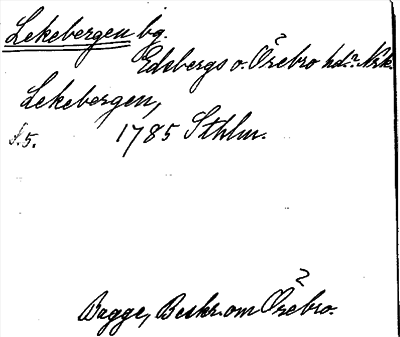 Lekebergen bg.
Edsbergs o. Örebro hd:r Nrk.
Lekebergen,
s. 5. 1785 Sthlm.
Bagge, Beskr. om Örebro.